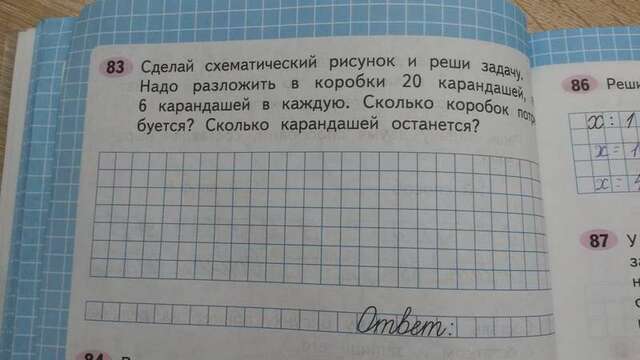 83 Сделай схематический рисунок и реши задачу.
Надо разложить в коробки 20 карандашей,
6 карандашей в каждую. Сколько коробок
буется? Сколько карандашей останется?
Ответ:
84
86
x : 1
x = 1
x =
87 У